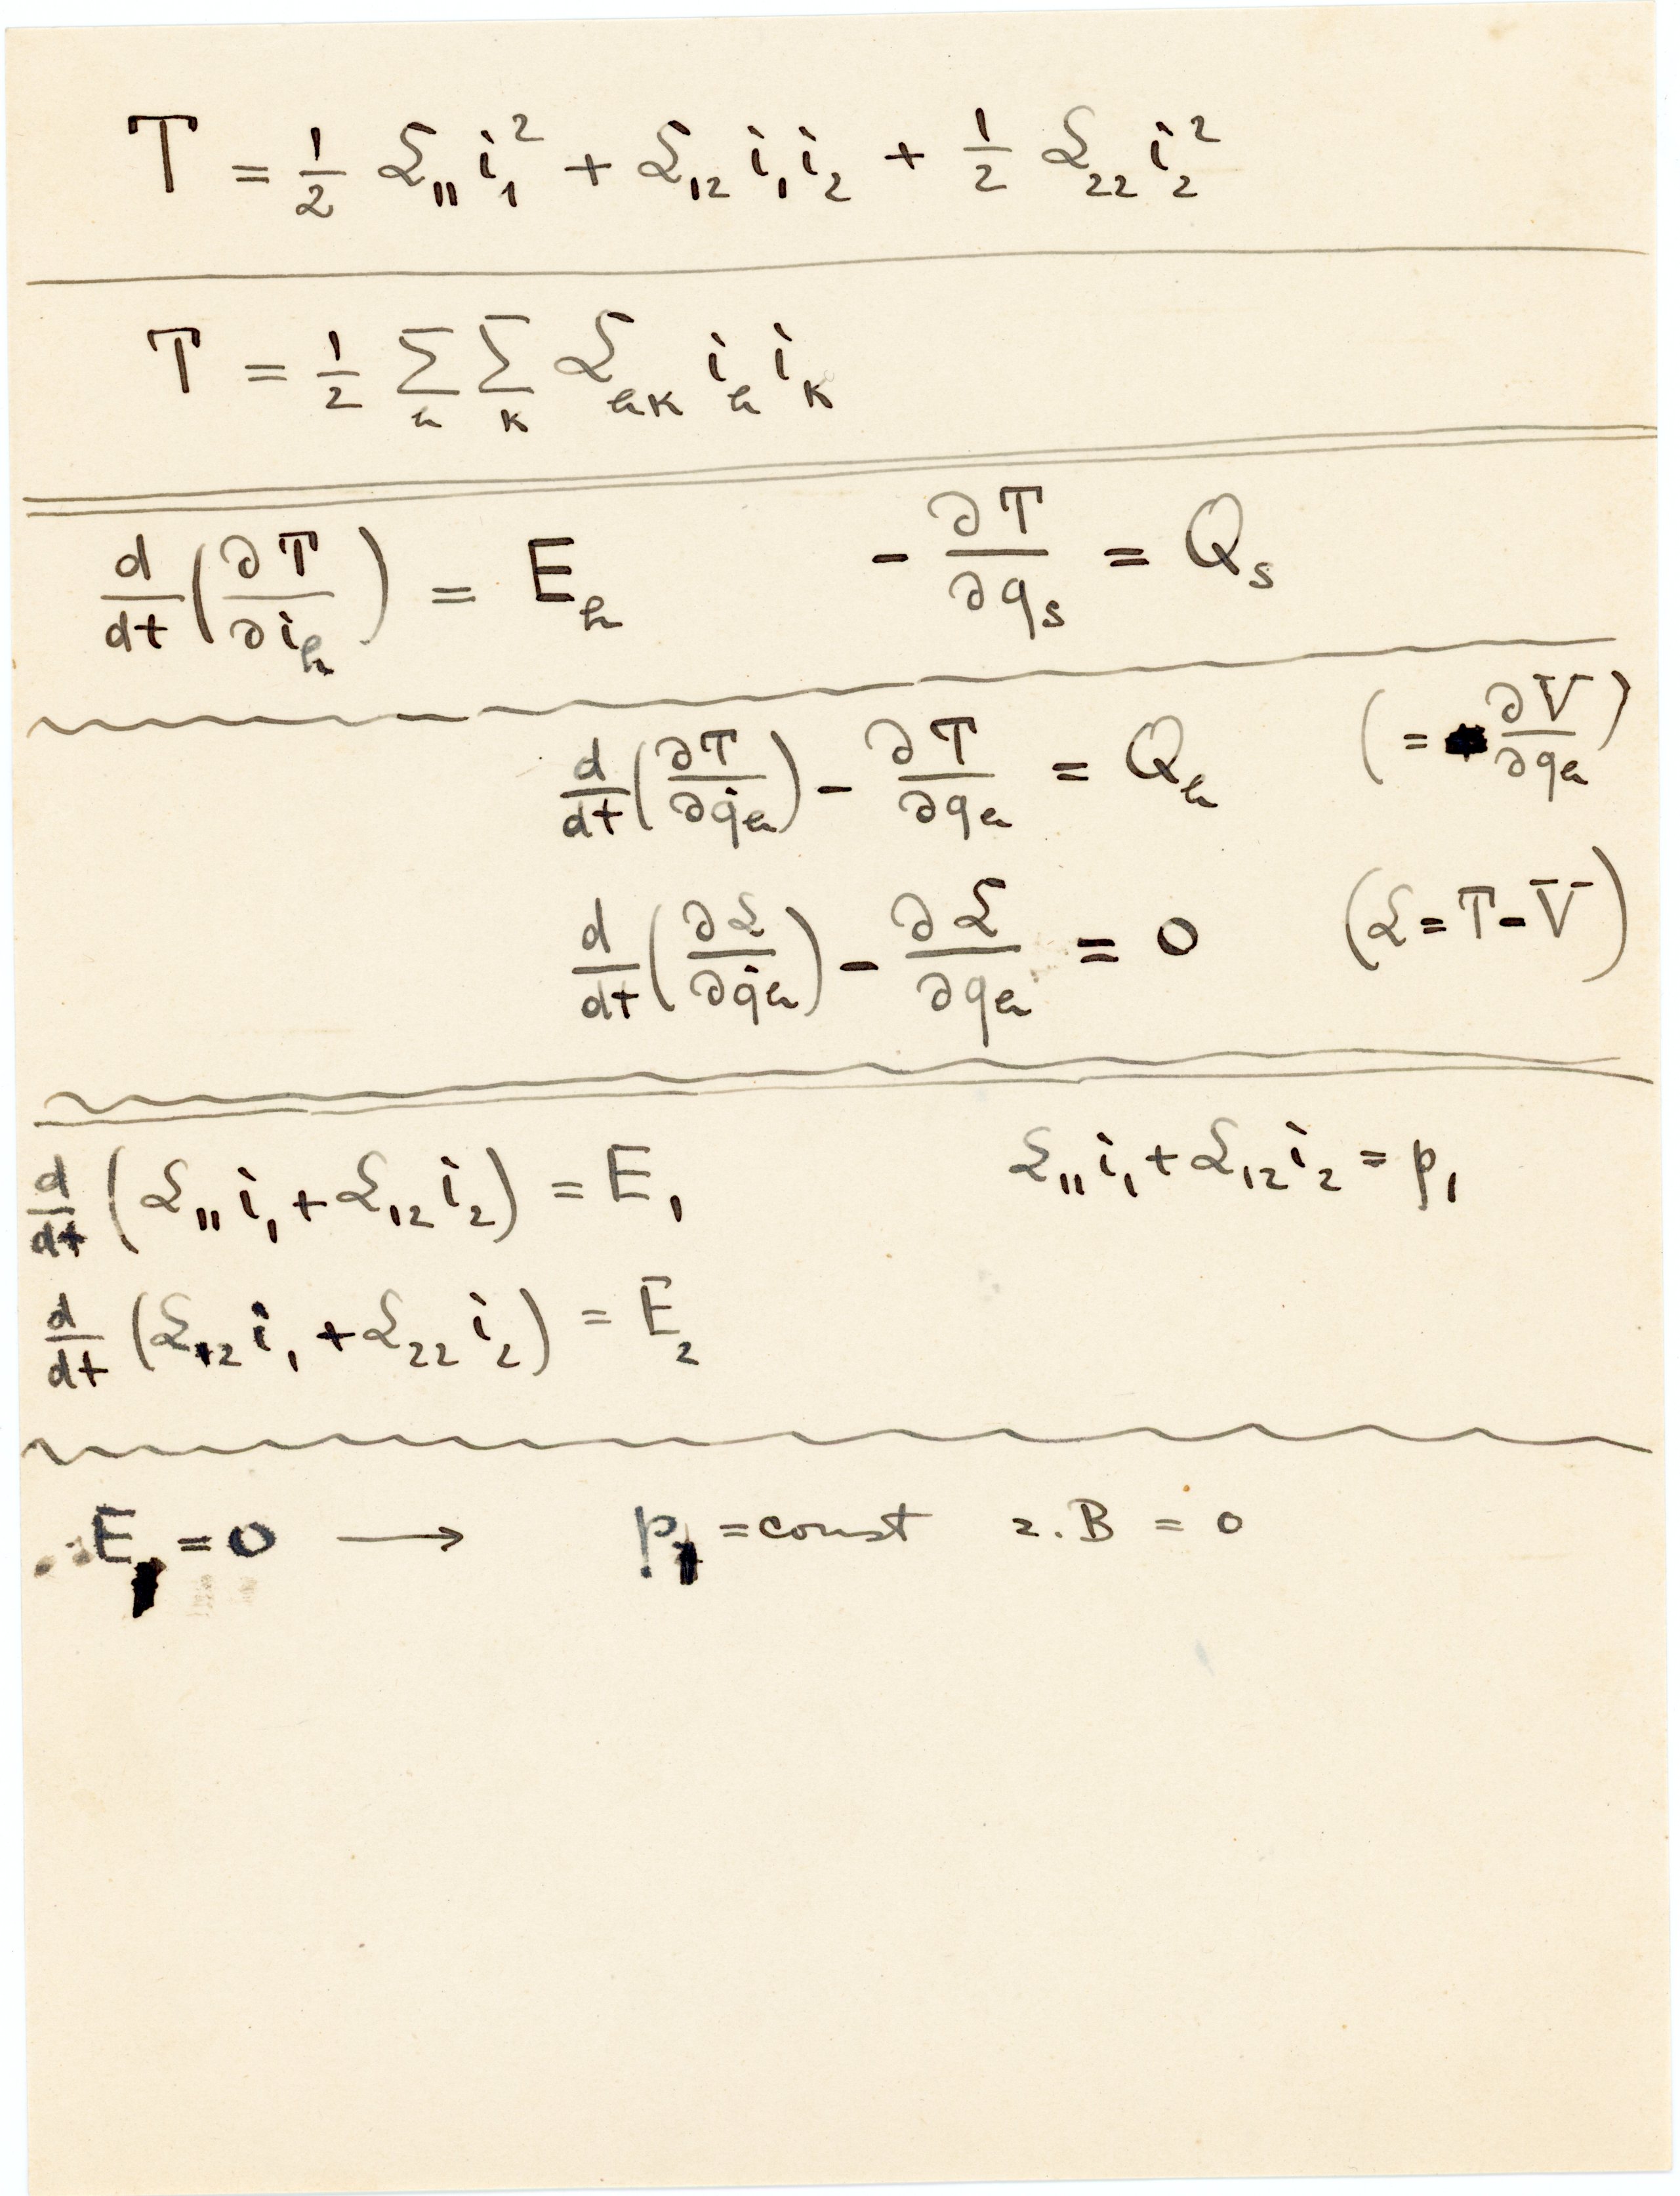 T = 1/2 L₁₁ i₁² + L₁₂ i₁ i₂ + 1/2 L₂₂ i₂²
T = 1/2 Σ_h Σ_k L_hk i_h i_k
d/dt (∂T/∂i_h) = E_h    - ∂T/∂q_s = Q_s
d/dt (∂T/∂q̇_h) - ∂T/∂q_h = Q_h    (= ∂V/∂q_h)
d/dt (∂L/∂q̇_h) - ∂L/∂q_h = 0    (L = T - V)
d/dt (L₁₁ i₁ + L₁₂ i₂) = E₁    L₁₁ i₁ + L₁₂ i₂ = p₁
d/dt (L₁₂ i₁ + L₂₂ i₂) = E₂
E₁ = 0 → p₁ = const z.B = 0